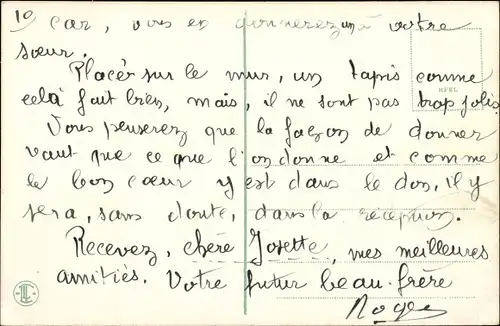 19 car, vous en donnerez un à votre
sœur.
Placés sur le mur, un tapis comme
celà fait bien, mais, il ne sont pas trop jolis.
REFL
Vous penserez que la façon de donner
vaut que ce que l'on donne et comme
le bon cœur y est dans le don, il y
sera, sans doute, dans la réception.
Recevez, chère Josette, mes meilleures
amitiés. Votre futur beau-frère
Roger